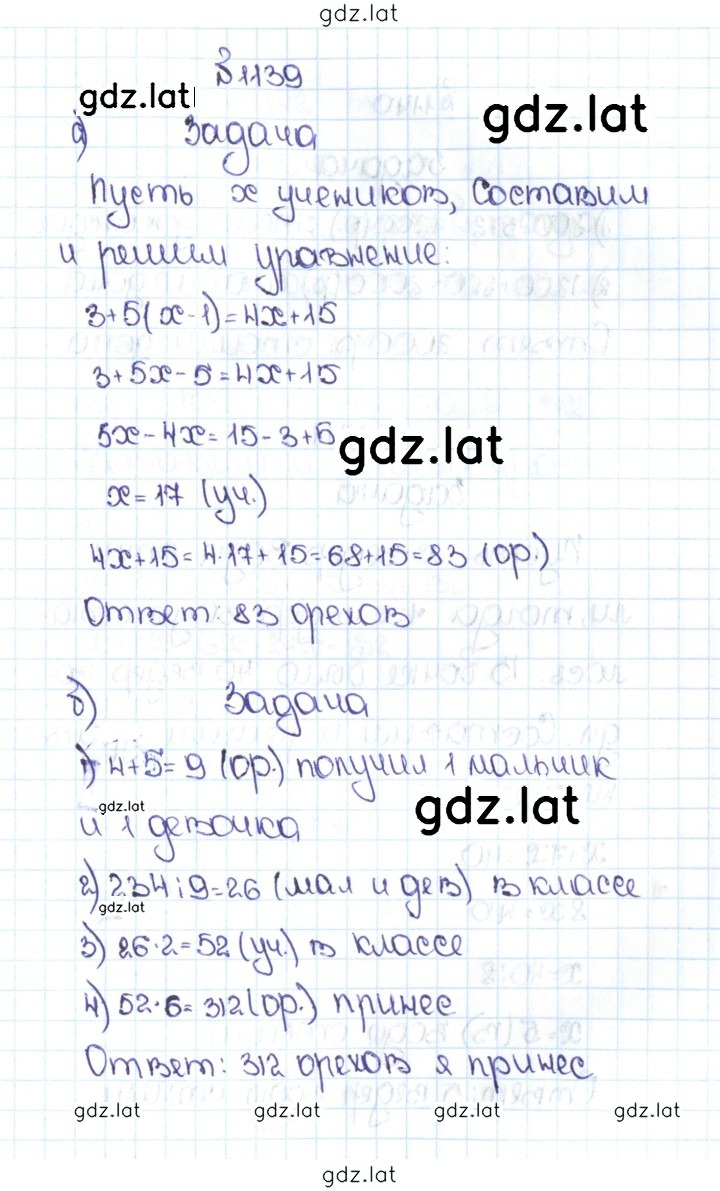 gdz.lat
№1139
gdz.lat
gdz.lat
а) Задача
Пусть x учеников, составим
и решим уравнение:
3+5(x-1)=4x+15
3+5x-5=4x+15
5x-4x=15-3+5
gdz.lat
x=17 (уч.)
4x+15=4·17+15=68+15=83 (ор.)
Ответ: 83 орехов
б) Задача
1) 4+5=9 (ор.) получил 1 мальчик
gdz.lat
gdz.lat
и 1 девочка
2) 234:9=26 (мал и дев) в классе
gdz.lat
3) 26·2=52 (уч.) в классе
4) 52·6=312 (ор.) принес
Ответ: 312 орехов я принес
gdz.lat gdz.lat gdz.lat gdz.lat
gdz.lat